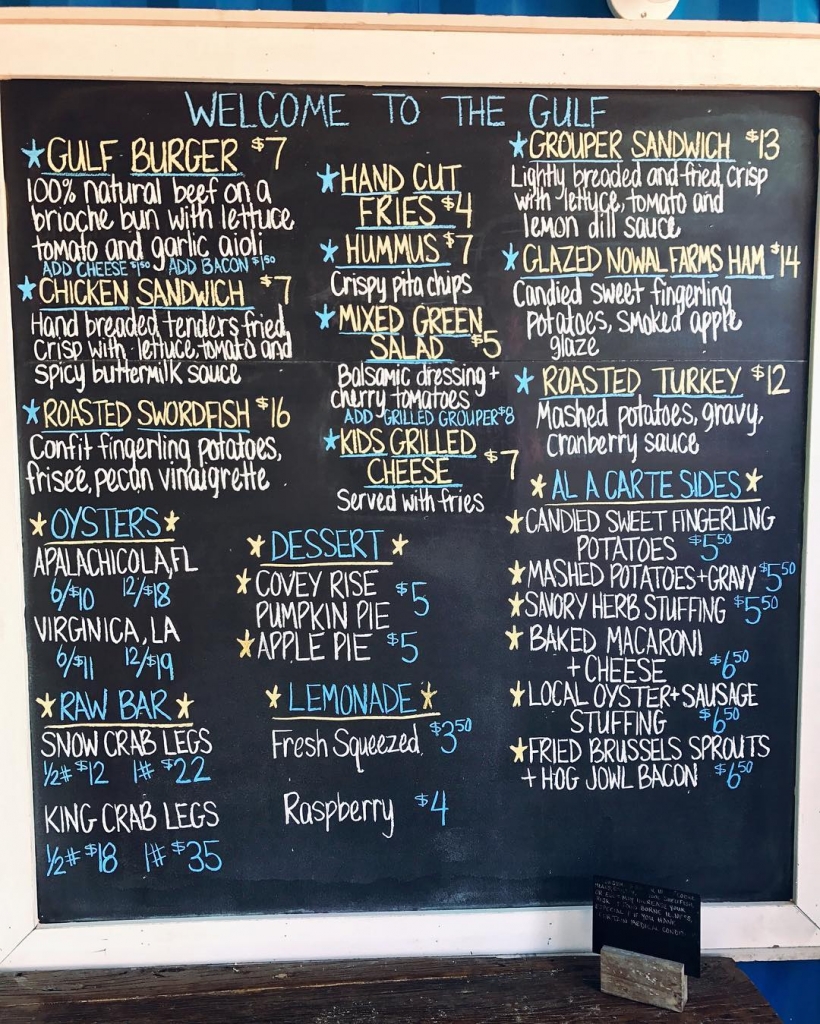 WELCOME TO THE GULF
GULF BURGER $7
100% natural beef on a
brioche bun with lettuce,
tomato and garlic aioli
ADD CHEESE $1.50 ADD BACON $1.50
CHICKEN SANDWICH $7
Hand breaded tenders fried,
crisp with lettuce, tomato and
spicy buttermilk sauce
ROASTED SWORDFISH $16
Confit fingerling potatoes,
friseé, pecan vinaigrette
OYSTERS
APALACHICOLA, FL
6/$10 12/$18
VIRGINICA, LA
6/$11 12/$19
RAW BAR
SNOW CRAB LEGS
1/2# $12 1# $22
KING CRAB LEGS
1/2# $18 1# $35
HAND CUT
FRIES $4
HUMMUS $7
Crispy pita chips
MIXED GREEN
SALAD $5
Balsamic dressing +
cherry tomatoes
ADD GRILLED GROUPER $8
KIDS GRILLED
CHEESE $7
Served with fries
DESSERT
COVEY RISE
PUMPKIN PIE $5
APPLE PIE $5
LEMONADE
Fresh Squeezed $3.50
Raspberry $4
GROUPER SANDWICH $13
Lightly breaded and fried crisp
with lettuce, tomato and
lemon dill sauce
GLAZED NOWAL FARMS HAM $14
Candied sweet fingerling
potatoes, smoked apple
glaze
ROASTED TURKEY $12
Mashed potatoes, gravy,
cranberry sauce
AL A CARTE SIDES
CANDIED SWEET FINGERLING
POTATOES $5.50
MASHED POTATOES + GRAVY $5.50
SAVORY HERB STUFFING $5.50
BAKED MACARONI
+ CHEESE $6.50
LOCAL OYSTER + SAUSAGE
STUFFING $6.50
FRIED BRUSSELS SPROUTS
+ HOG JOWL BACON $6.50